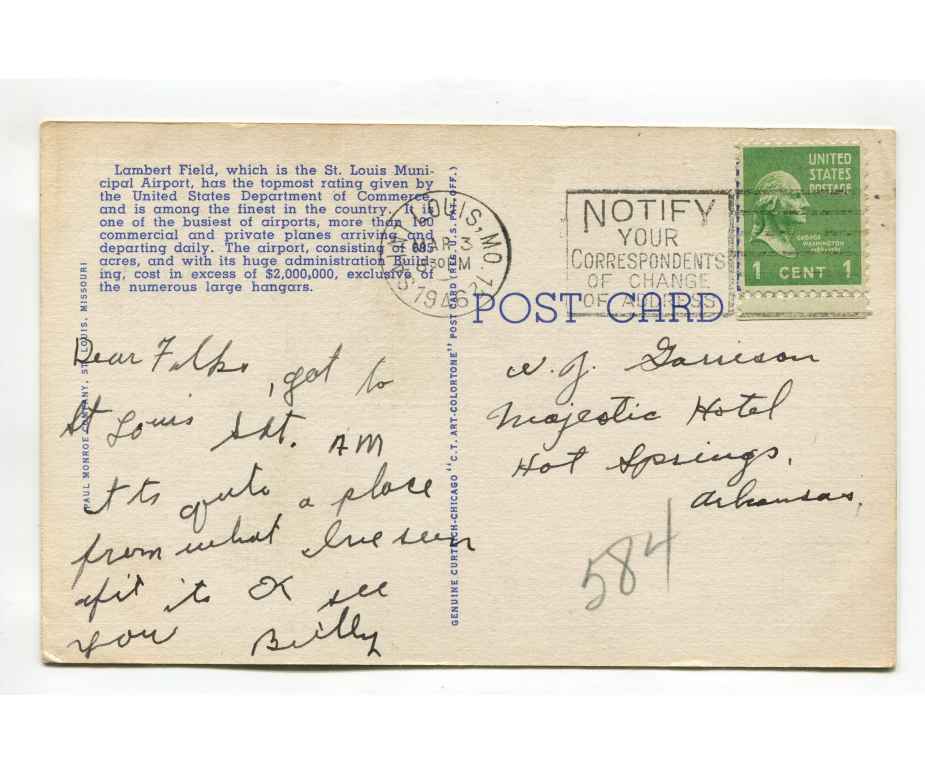 Lambert Field, which is the St. Louis Muni-
cipal Airport, has the topmost rating given by
the United States Department of Commerce
and is among the finest in the country. It is
one of the busiest of airports, more than 180
commercial and private planes arriving and
departing daily. The airport, consisting of 695
acres, and with its huge administration Build-
ing, cost in excess of $2,000,000, exclusive of
the numerous large hangars.
PAUL MONROE COMPANY, ST. LOUIS, MISSOURI
Dear Folks
, got to
St Louis Sat. AM
Its quite a place
from what Ive seen
of it its OK see
you Billy
GENUINE CURTEICH-CHICAGO "C.T. ART-COLORTONE" POST CARD (REG. U.S. PAT. OFF.)
SAINT LOUIS, MO.
MAR 3
30 PM
1946
NOTIFY
YOUR
CORRESPONDENTS
OF CHANGE
OF ADDRESS
UNITED
STATES
POSTAGE
GEORGE
WASHINGTON
1 CENT 1
POST CARD
W. J. Garrison
Majestic Hotel
Hot Springs,
Arkansas,
584